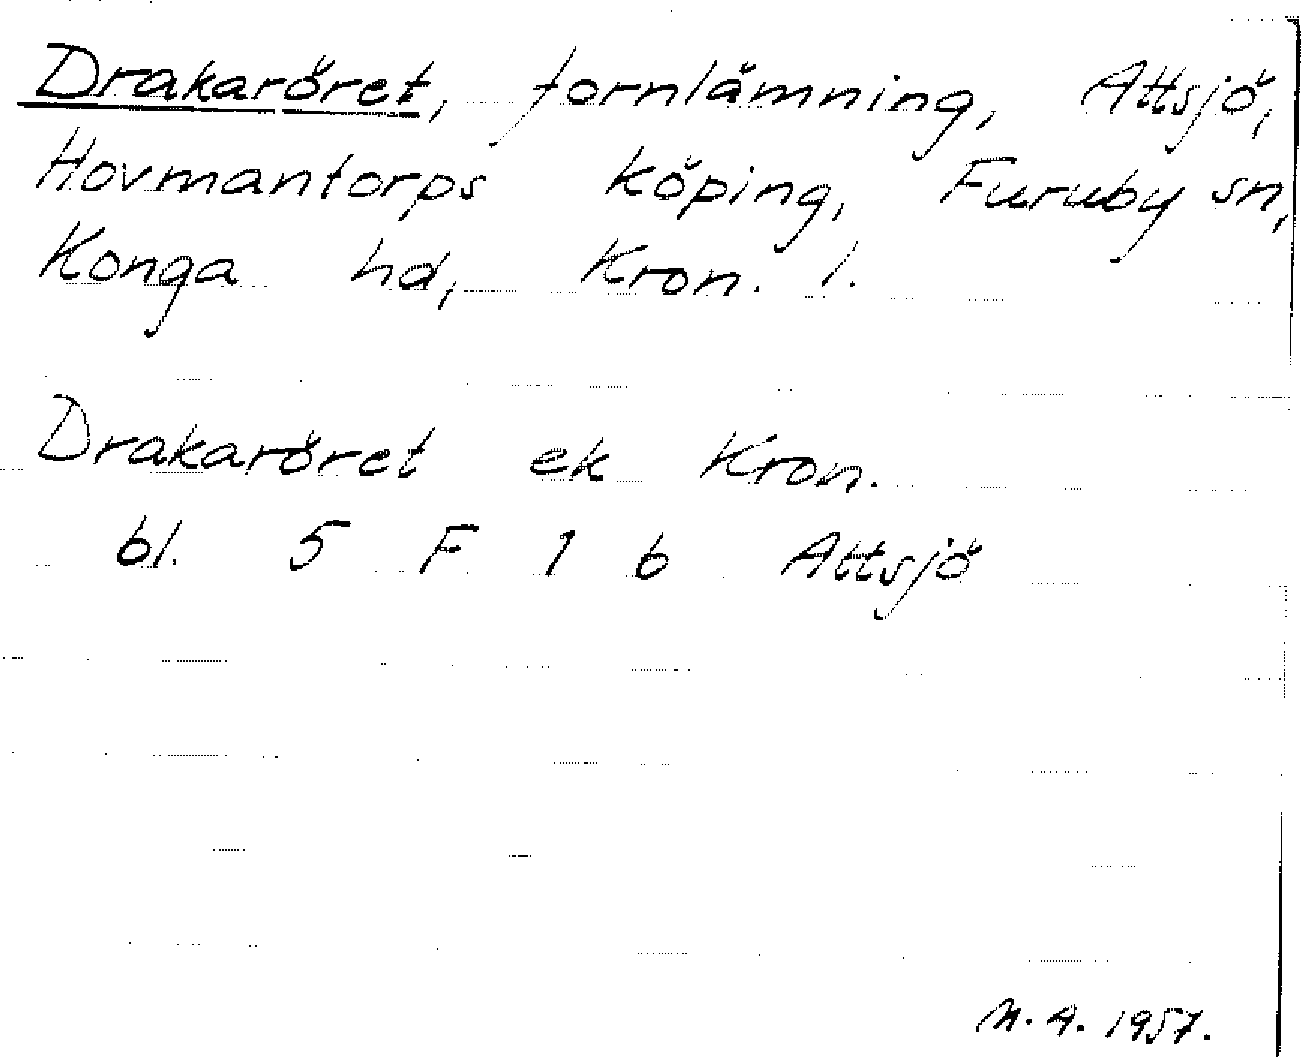 Drakaröret, fornlämning, Attsjö,
Hovmantorps köping, Furuby sn,
Konga hd, Kron. l.
Drakaröret ek Kron.
bl. 5 F 1 b Attsjö
N. A. 1957.